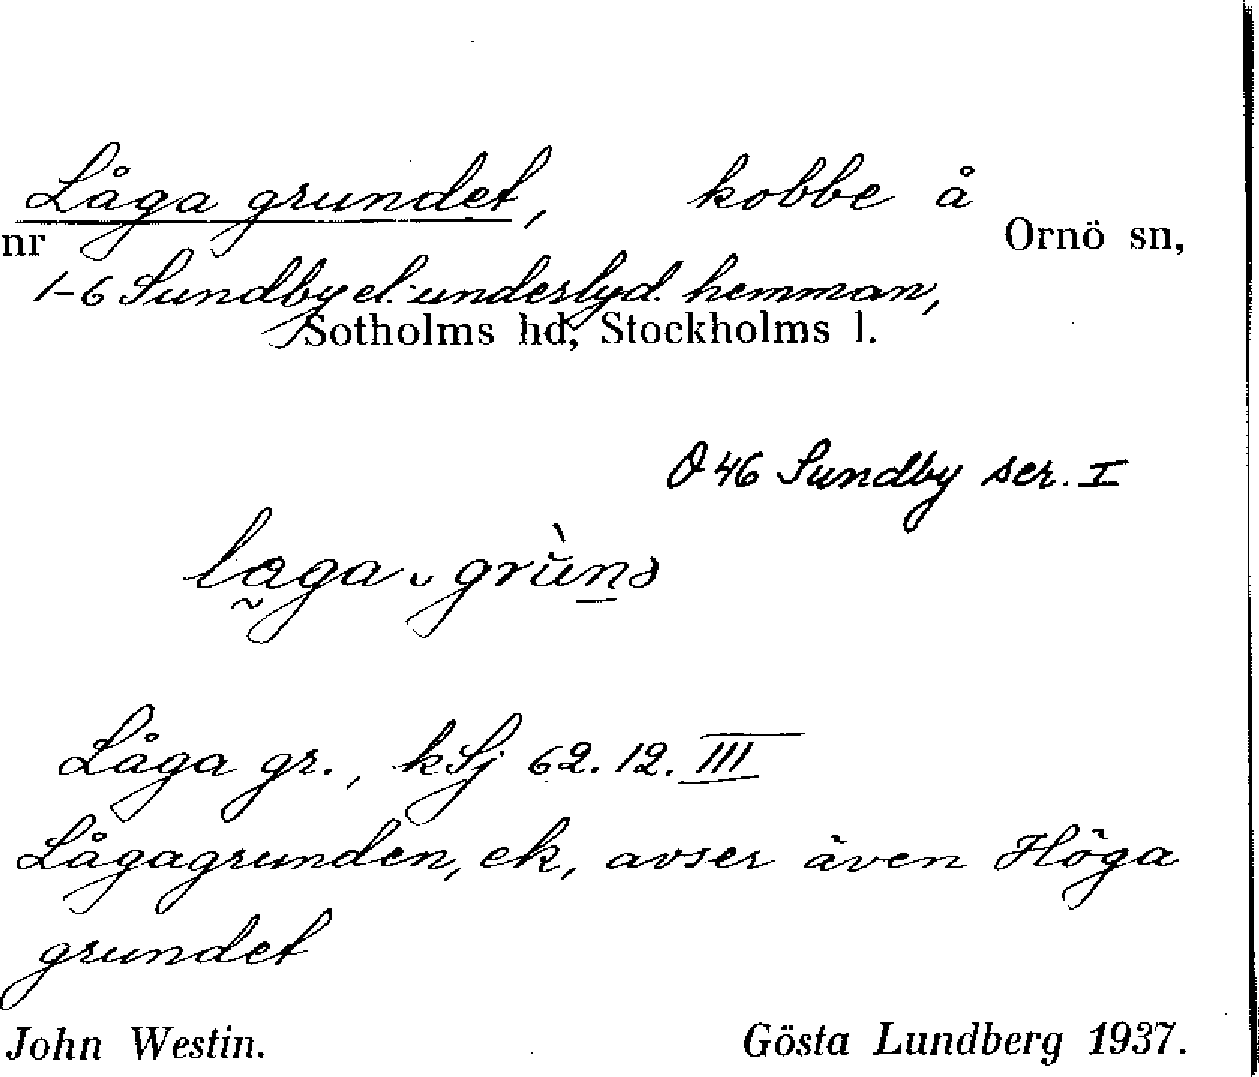 Låga grundet, kobbe å
nr Ornö sn,
1-6 Sundby el. underlyd. hemman,
Sotholms hd, Stockholms l.
O 46 Sundby ser. I
Låga gr., kSj 62.12.III
Lågagrunden, ek, avser även Höga
grundet
John Westin. Gösta Lundberg 1937.